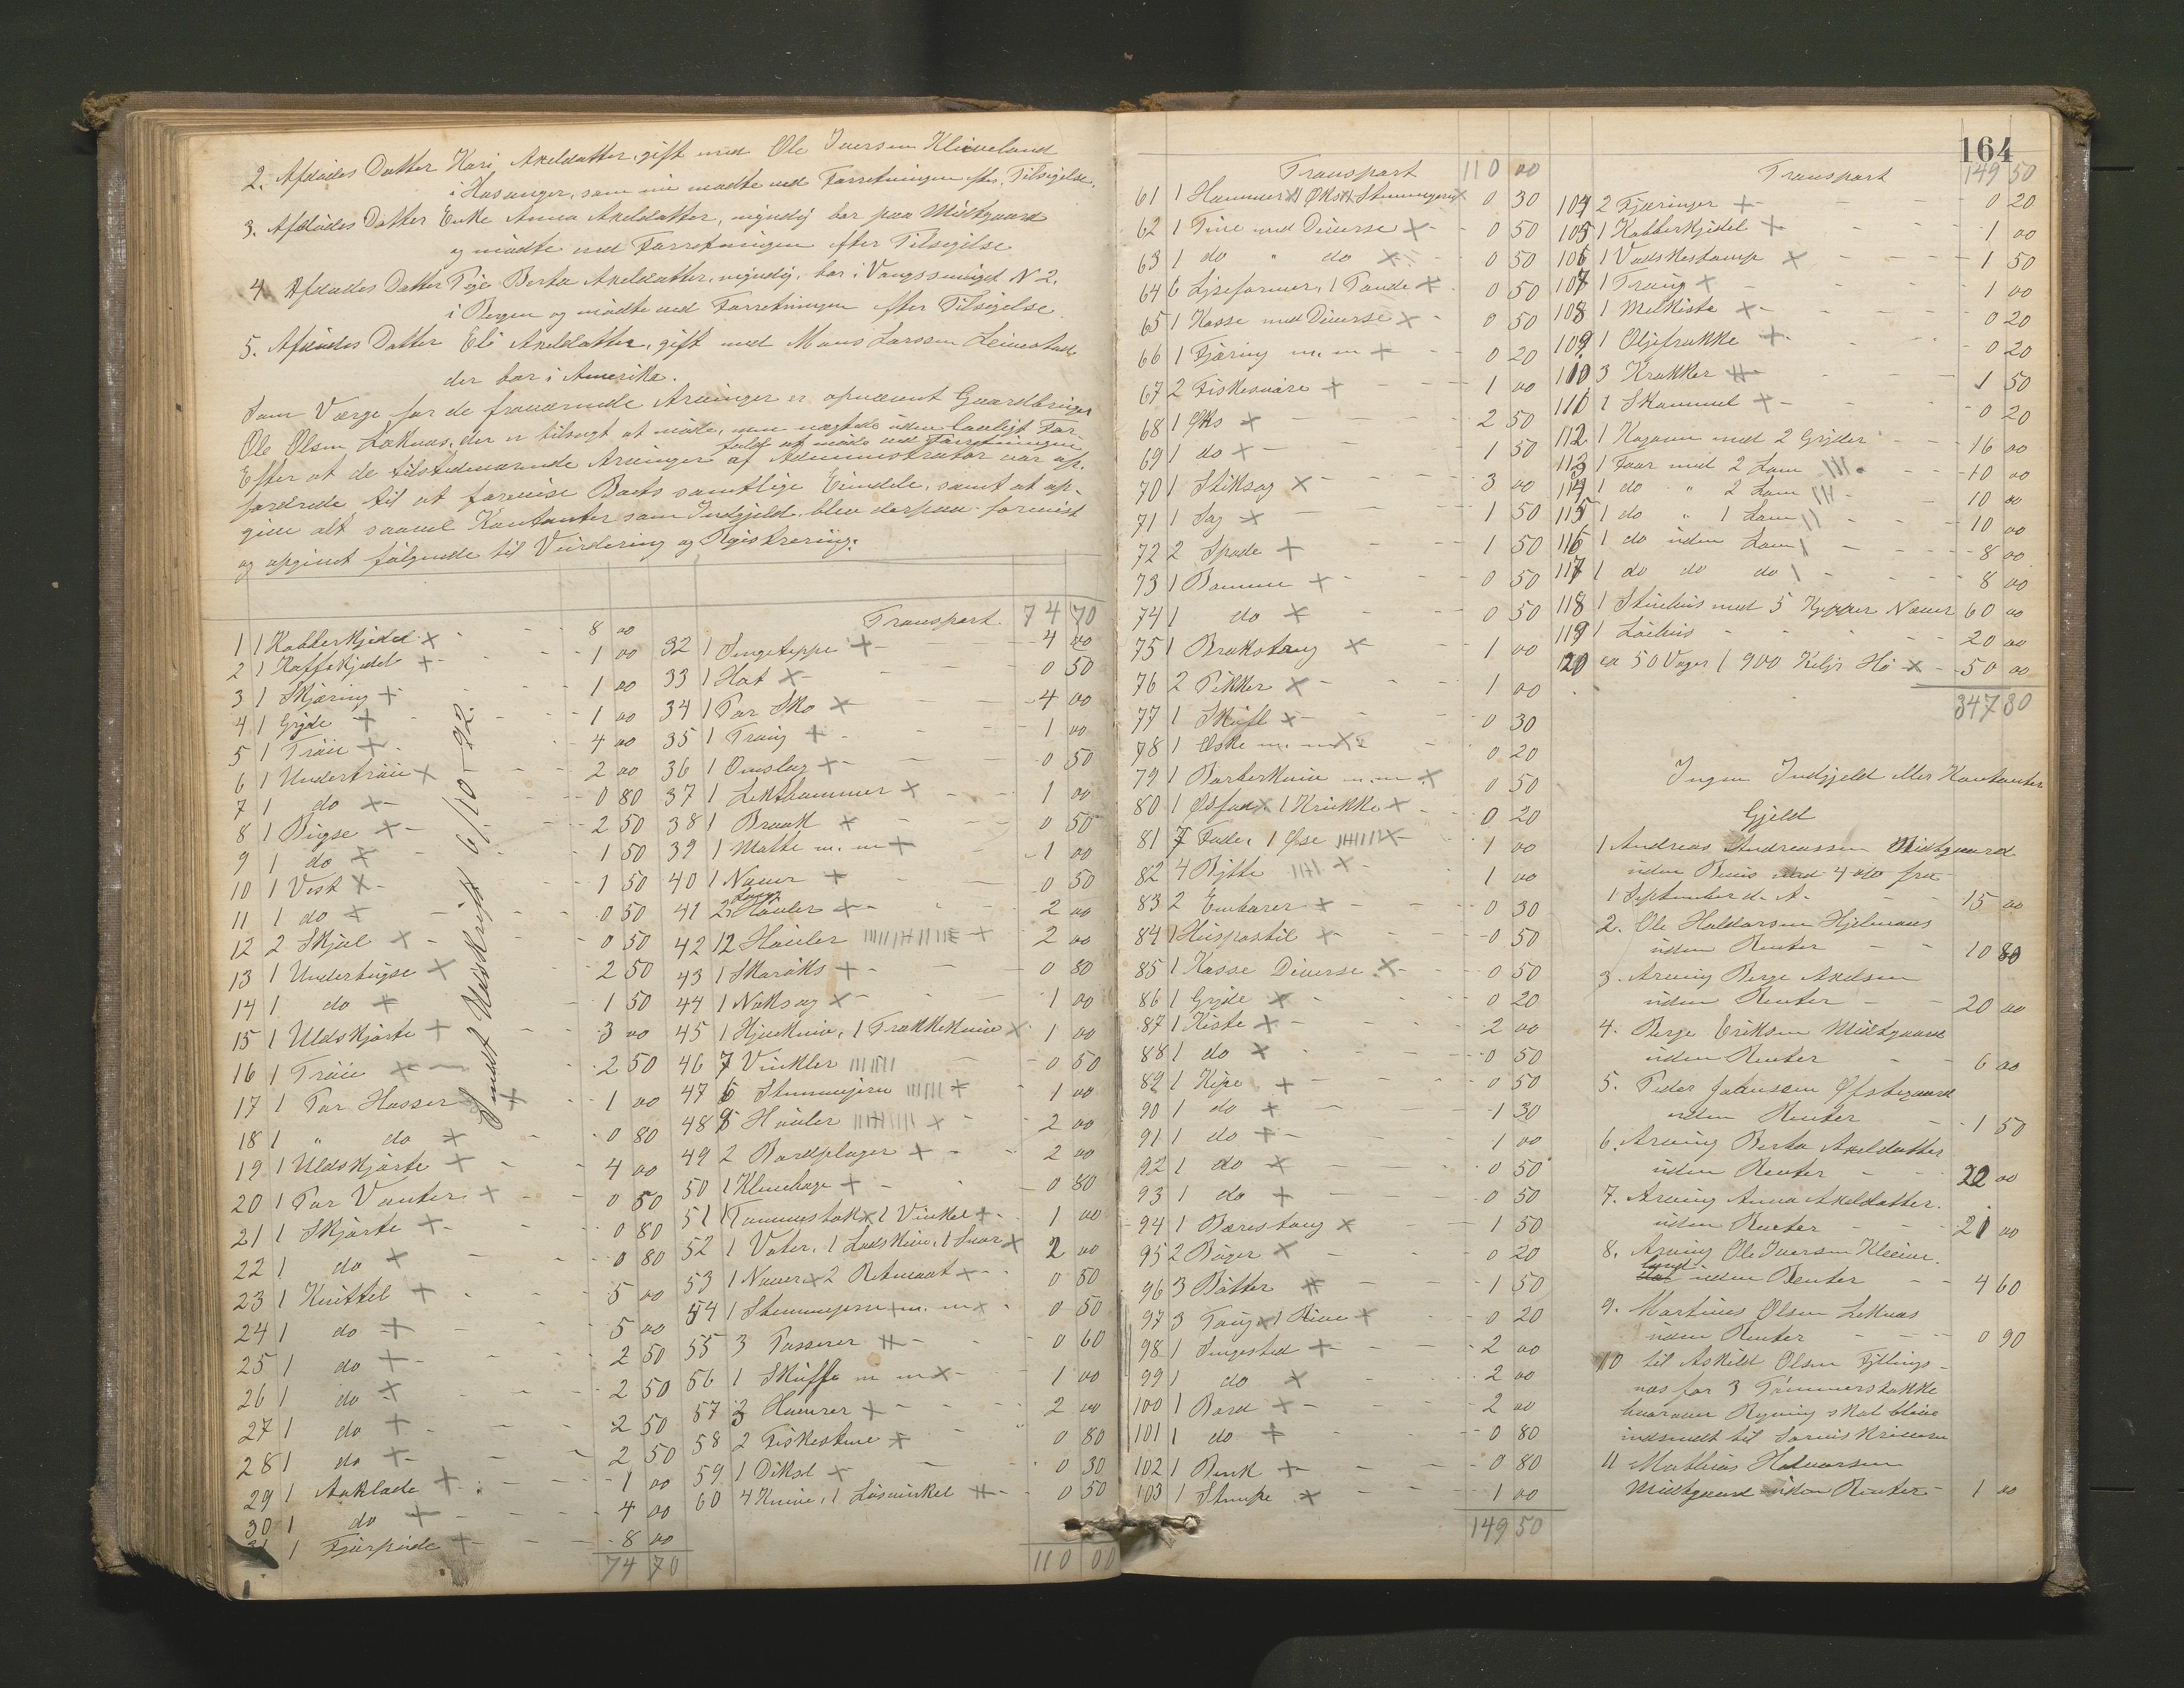 2. Afdödes Datter Kari Axeldatter, gift med Ole Iversen Kleiveland
i Hosanger, som nu mødte ved Forretningen efter Tilsigelse.
3. Afdödes Datter Enke Anna Axeldatter, myndig bor paa Midtgaard
og mødte ved Forretningen efter Tilsigelse
4. Afdödes Datter Pige Berta Axeldatter, myndig, bor i Vangssmuget N 2.
i Bergen og mødte ved Forretningen efter Tilsigelse.
5. Afdödes Datter Eli Axeldatter, gift med Mons Larssen
der bor i Amerika.
Som Værge for de fraværende Arvinger er opnævnt Gaardbruger
Ole Olsen Loknæs, der er tilsagt at møde, men nægtede uden lovligt For-
fald at møde ved Forretningen
Efter at de tilstedeværende Arvinger af Administrator var op-
fordrede til at forevise Boets samtlige Eiendele, samt at op-
give alt saavel Kontanter som Indgjeld, blev derpaa forevist
og opgivet følgende til Vurdering og Registrering:
Indt Udskrift 6/10-92.
1 1 Kobberkjedel 8 00
2 1 Kaffekjedel 1 00
3 1 Skjæring 1 00
4 1 Gryde 1 00
5 1 Tröie 4 00
6 1 Undertröie 2 00
7 1 do 0 80
8 1 Bugse 2 50
9 1 do 1 50
10 1 Vest 1 50
11 1 do 0 50
12 2 Skjæl 0 50
13 1 Underbugse 2 50
14 1 do 1 50
15 1 Uldskjorte 3 00
16 1 Tröie 2 50
17 1 Par Hosser 1 00
18 1 " do 0 80
19 1 Uldskjorte 4 00
20 1 Par Vanter 0 50
21 1 Skjorte 0 80
22 1 do 0 80
23 1 Knittel 5 00
24 1 do 5 00
25 1 do 2 50
26 1 do 2 50
27 1 do 2 50
28 1 do 2 50
29 1 Aaklade 1 00
30 1 do 4 00
31 1 Fjærpude 8 00
74 70
Transport 74 70
32 1 Sengeteppe 4 00
33 1 Hat 0 50
34 1 Par Sko 4 00
35 1 Traug 1 00
36 1 Omslag 0 50
37 1 Lekthammer 1 00
38 1 Braak 0 50
39 1 Matte m. m 1 00
40 1 Naver 0 50
41 2 Lange Høvler 2 00
42 12 Høvler 2 00
43 1 Skaröks 0 80
44 1 Noksag 1 00
45 1 Hjulkniv, 1 Trækkekniv 1 00
46 7 Vinkler 0 50
47 6 Stemmejern 1 00
48 8 Høvler 2 00
49 2 Bordplager 2 00
50 1 Klinehage 0 80
51 1 Tommestok, 1 Vinkel 1 00
52 1 Vater, 1 Ladskive, 1 Snor 2 00
53 1 Naver, 2 Retmaat 0 50
54 1 Stemmejern m. m 0 50
55 3 Passerer 0 60
56 1 Skuffe m m 1 00
57 3 Hævrer 2 00
58 2 Fiskestine 0 80
59 1 Diksel 0 30
60 4 Knive, 1 Løsvinkel 0 50
110 00
164
Transport 110 00
61 1 Hammer, 1 Øks, 1 Stemmejern 0 30
62 1 Tine med Diverse 0 50
63 1 do " do 0 50
64 6 Lyseformer, 1 Pande 0 50
65 1 Kasse med Diverse 0 50
66 1 Fjæring m. m 0 20
67 2 Fiskesnøre 1 00
68 1 Øks 2 50
69 1 do 1 50
70 1 Stiksag 3 00
71 1 Sag 1 50
72 2 Spade 1 50
73 1 Bomme 0 50
74 1 do 0 50
75 1 Brækstang 1 00
76 2 Pikker 1 00
77 1 Skufl 0 30
78 1 Æske m. m 0 20
79 1 Barberkniv m.m. 0 50
80 1 Øsfad, 1 Krukke 0 20
81 7 Fade, 1 Øse 1 00
82 4 Bytte 1 00
83 2 Embarer 0 30
84 1 Huspostil 0 50
85 1 Kasse Diverse 0 50
86 1 Gryde 0 20
87 1 Kiste 2 00
88 1 do 0 50
89 1 Kipe 0 50
90 1 do 1 30
91 1 do 1 00
92 1 do 0 50
93 1 do 0 50
94 1 Bærestang 1 50
95 2 Bøger 0 20
96 3 Bøtter 1 50
97 3 Taug, 1 Rive 0 20
98 1 Sengested 2 00
99 1 do 2 00
100 1 Bord 2 00
101 1 do 0 80
102 1 Benk 0 80
103 1 Stampe 1 00
149 50
Transport 149 50
104 2 Fjæringer 0 20
105 1 Kobberkjedel 1 00
106 1 Vadskestamp 1 50
107 1 Traug 1 00
108 1 Melkiste 0 20
109 1 Oljefrakke 0 20
110 3 Krakker 1 50
111 1 Skammel 0 20
112 1 Kogovn med 2 Gryder 16 00
113 1 Faar med 2 Lam 10 00
114 1 do " 2 Lam 10 00
115 1 do " 1 Lam 10 00
116 1 do uden Lam 8 00
117 1 do do do 8 00
118 1 Stuehus med 5 Kipper Næver 60 00
119 1 Løehus 20 00
120 ca 50 Voger / 900 Kilgr Hö 50 00
347 80
Ingen Indgjeld eller Kontanter
Gjeld
1 Andreas Andreassen Midtgaard
uden Bevis med 4 o/o fra
1 September d. A. 15 00
2. Ole Haldorsen Hjelmaas
uden Renter 10 80
3. Arving Berge Axelsen
uden Renter 20 00
4. Berge Eriksen Midtgaard
uden Renter 6 00
5. Peder Johnssen Øfstegaard
uden Renter 1 50
6. Arving Berta Axeldatter
uden Renter 22 00
7. Arving Anna Axeldatter.
uden Renter 21 00
8. Arving Ole Iversen Kleive-
land uden Renter 4 60
9. Martinus Olsen Loknæs
uden Renter 0 90
10 til Askild Olsen Fyllings-
næs for 3 Tømmerstokke
hvorover Regning skal blive
indsendt til Sorenskriveren
11 Mathias Halvorsen
Midtgaard uden Renter 1 00